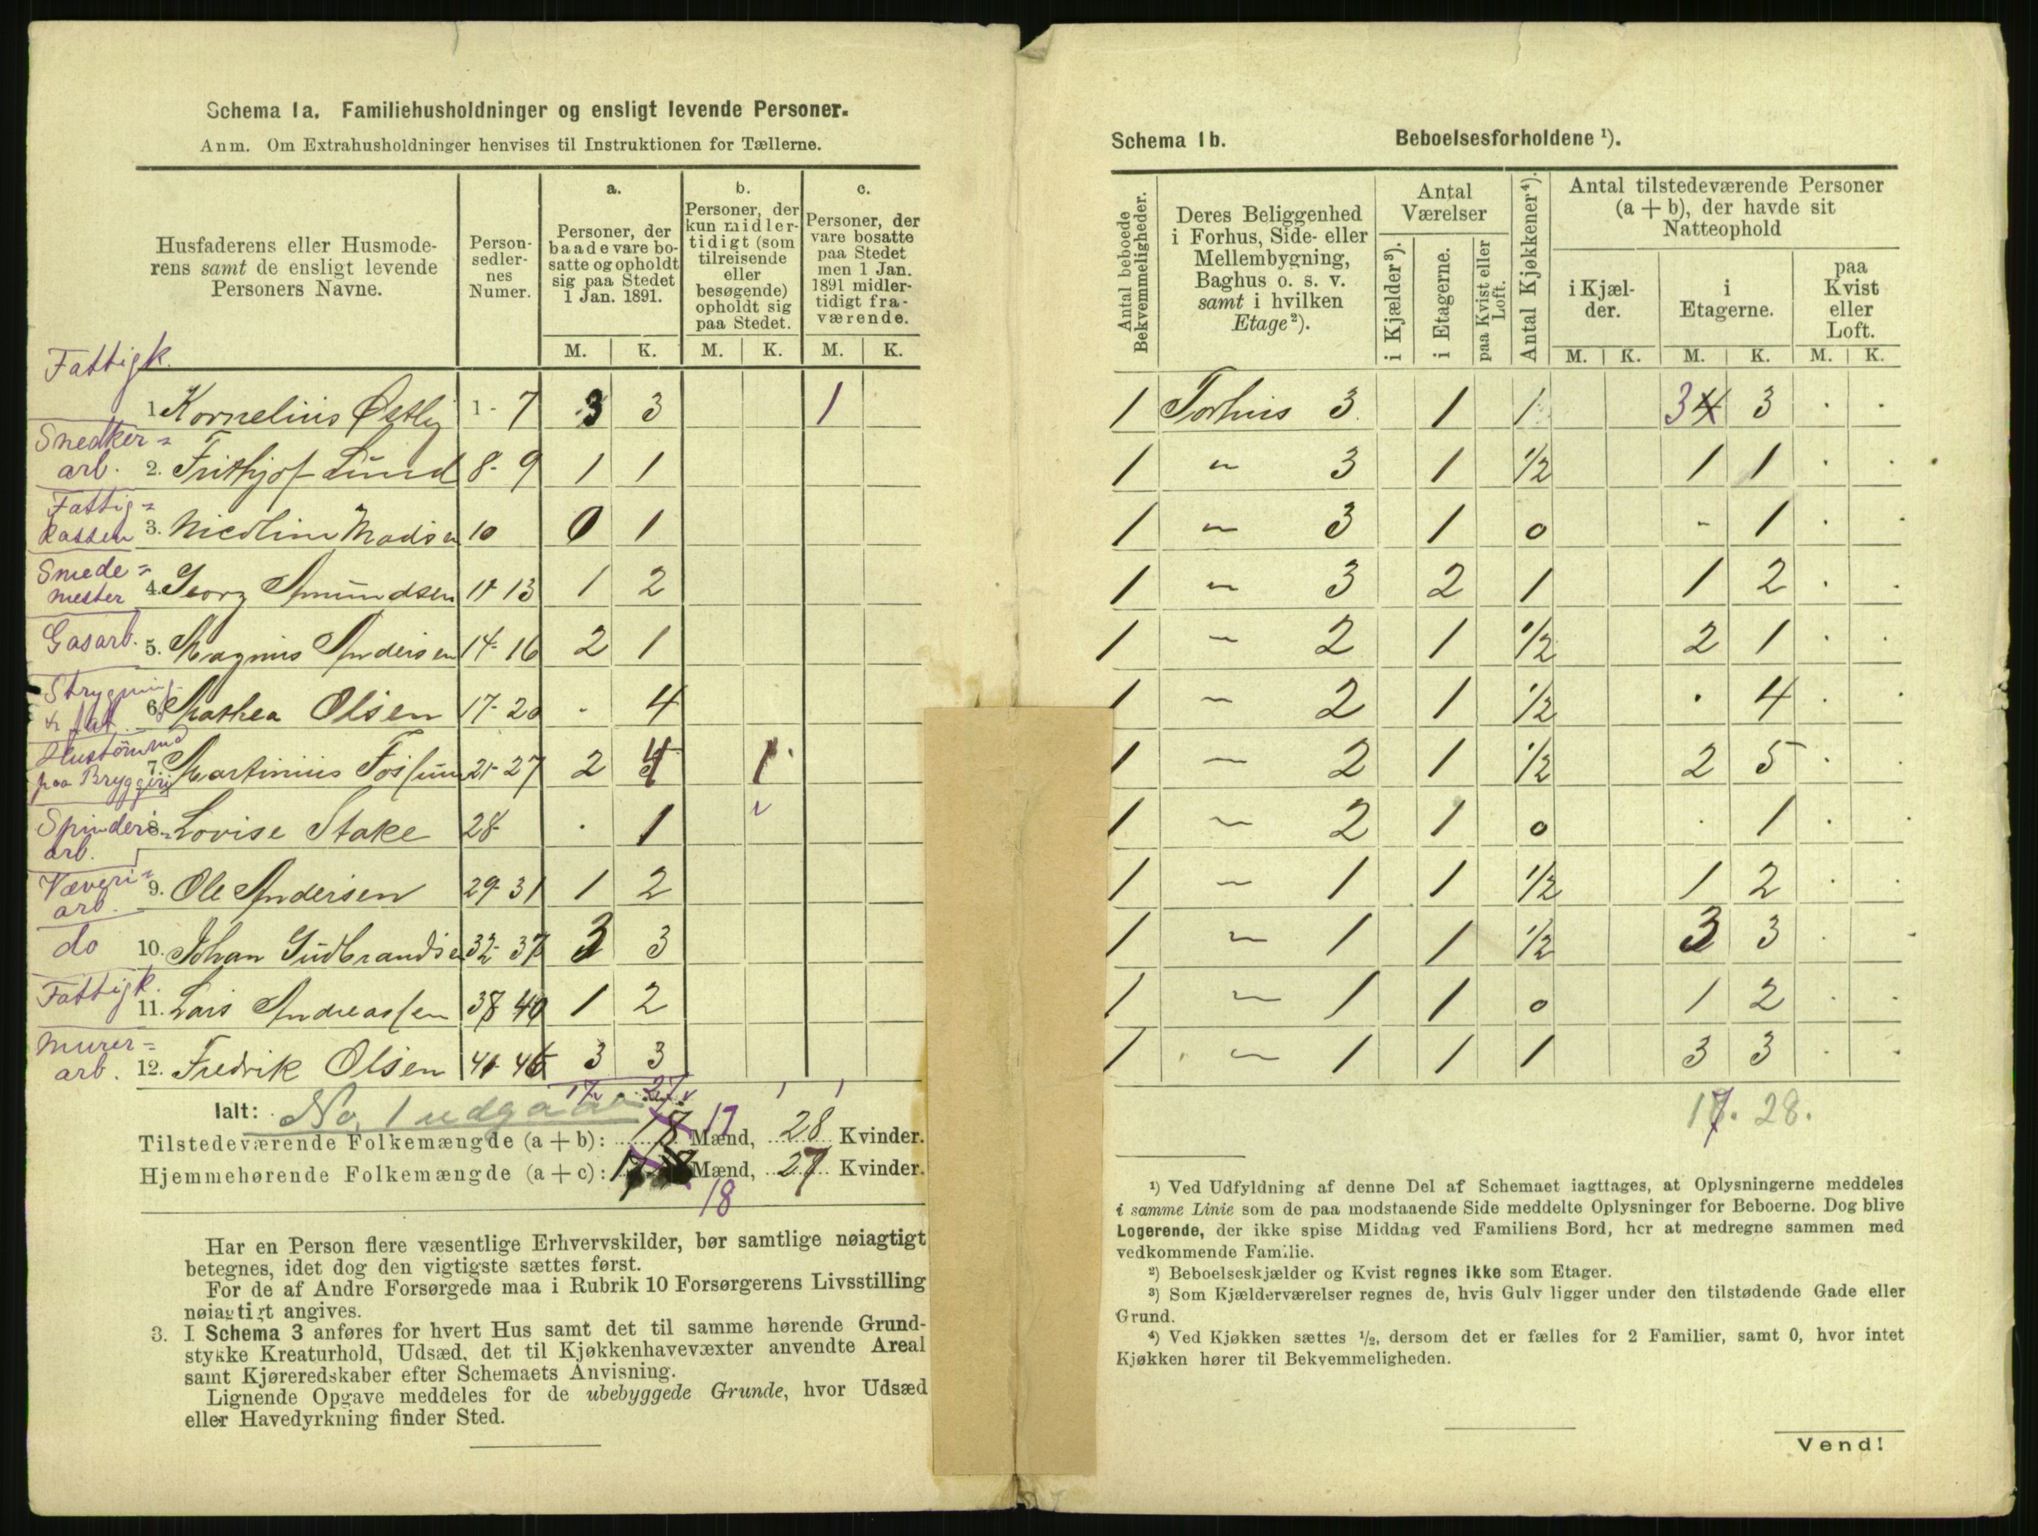 Schema 1a. Familiehusholdninger og ensligt levende Personer.
Anm. Om Extrahusholdninger henvises til Instruktionen for Tællerne.
Husfaderens eller Husmode-
rens samt de ensligt levende
Personers Navne.
Person-
sedler-
nes
Numer.
a.
Personer, der
baade vare bo-
satte og opholdt
sig paa Stedet
1 Jan. 1891.
b.
Personer, der
kun midler-
tidigt (som
tilreisende
eller
besøgende)
opholdt sig
paa Stedet.
c.
Personer, der
vare bosatte
paa Stedet
men 1 Jan.
1891 midler-
tidigt fra-
værende.
M. K. M. K. M. K.
Fattigk.
1 Kornelius Østby 1 - 7 3 3 1
Snedker=
arb. 2. Frithjof Lund 8 - 9 1 1
Fattig=
kassen 3. Nicoline Madsen 10 0 1
Smede=
mester 4. Georg Amundsen 11 - 13 1 2
Gasarb. 5. Magnus Andersen 14 - 16 2 1
Strygning
& fat. 6. Mathea Olsen 17 - 20 . 4
paa Bryggeri 7. Martinius Fossum 21 - 27 2 4 1
Spinderi=
arb. 8. Lovise Stake 28 . 1
Væveri=
arb. 9. Ole Andersen 29 - 31 1 2
do 10. Johan Gudbrandsen 32 - 37 3 3
Fattigk. 11. Lars Andreassen 38 - 40 1 2
Murer=
arb. 12. Fredrik Olsen 41 - 46 3 3
17 27 1 1
Ialt: No. 1 udgaar
Tilstedeværende Folkemængde (a + b): 18 17 Mænd, 28 Kvinder.
Hjemmehørende Folkemængde (a + c): 17 18 Mænd, 27 Kvinder.
18
Har en Person flere væsentlige Erhvervskilder, bør samtlige nøiagtigt
betegnes, idet dog den vigtigste sættes først.
For de af Andre Forsørgede maa i Rubrik 10 Forsørgerens Livsstilling
nøiagtigt angives.
3. I Schema 3 anføres for hvert Hus samt det til samme hørende Grund-
stykke Kreaturhold, Udsæd, det til Kjøkkenhavevæxter anvendte Areal
samt Kjøreredskaber efter Schemaets Anvisning.
Lignende Opgave meddeles for de ubebyggede Grunde, hvor Udsæd
eller Havedyrkning finder Sted.
Schema 1b. Beboelsesforholdene ¹).
Antal beboede
Bekvemmeligheder.
Deres Beliggenhed
i Forhus, Side- eller
Mellembygning,
Baghus o. s. v.
samt i hvilken
Etage²).
Antal
Værelser
i Kjælder³).
i Etagerne.
paa Kvist eller
Loft.
Antal Kjøkkener⁴).
Antal tilstedeværende Personer
(a + b), der havde sit
Natteophold
i Kjæl-
der.
i
Etagerne.
paa
Kvist
eller
Loft.
M. K. M. K. M. K.
1 Forhus 3 1 1 3 4 3 . .
1 " 3 1 ½ 1 1 . .
1 " 3 1 0 - 1 . .
1 " 3 2 1 1 2 . .
1 " 2 1 ½ 2 1 . .
1 " 2 1 ½ . 4 . .
1 " 2 1 ½ 2 5 . .
1 " 2 1 0 . 1 . .
1 " 1 1 ½ 1 2 . .
1 " 1 1 ½ 3 3 . .
1 " 1 1 0 1 2 . .
1 " 1 1 1 3 3 . .
17. 28.
¹) Ved Udfyldning af denne Del af Schemaet iagttages, at Oplysningerne meddeles
i samme Linie som de paa modstaaende Side meddelte Oplysninger for Beboerne. Dog blive
Logerende, der ikke spise Middag ved Familiens Bord, her at medregne sammen med
vedkommende Familie.
²) Beboelseskjælder og Kvist regnes ikke som Etager.
³) Som Kjælderværelser regnes de, hvis Gulv ligger under den tilstødende Gade eller
Grund.
⁴) Ved Kjøkken sættes ½, dersom det er fælles for 2 Familier, samt 0, hvor intet
Kjøkken hører til Bekvemmeligheden.
Vend!